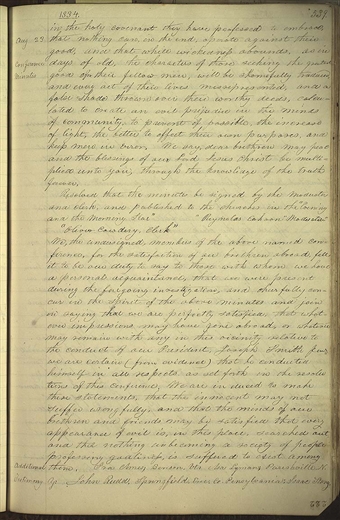 1834.
339
Aug. 23
in the holy covenant they have professed to embrace,
that nothing can, in the end, operate against their
good, and that while wickedness abounds, as in
Conference
days of old, the characters of those seeking the greatest
Minutes
good of their fellow men, will be shamefully traduced,
and every act of their lives misrepresented, and a
false shade thrown over their worthy deeds, calcu-
lated to create an evil prejudice in the minds
of community, to prevent, if possible, the increase
of light, the better to effect their own purposes, and
keep men in error. We say, dear brethren may peace
and the blessings of our Lord Jesus Christ be multi-
plied unto you, through the knowledge of the truth
forever.
Resolved that the minutes be signed by the moderator
and clerk, and published to the churches in the "Evening
and the Morning Star" Reynolds Cahoon Moderator
"Oliver Cowdery, Clerk"
We, the undersigned, members of the above named con-
ference, for the satisfaction of our brethren abroad, feel
it to be our duty to say to those with whom we have
a personal acquaintance, that we were present
during the foregoing investigation, and cheerfully con-
cur in the spirit of the above minutes and join
in saying that we are perfectly satisfied, that what-
ever impressions may have gone abroad, or whatever
may remain with any in this vicinity relative to
the conduct of our President, Joseph Smith jun.
we are certain (from evidence) that he conducted
himself in all respects, as set forth in the resolu-
tions of this conference. We are induced to make
these statements, that the innocent may not
suffer wrongfully, and that the minds of our
brethren and friends may be satisfied that every
appearance of evil is, in this place, searched out
and that nothing unbecoming a society of people
professing godliness, is suffered to exist among
Additional
them.
Testimony
John Rudd, Springfield, Erie Co Pennsylvania